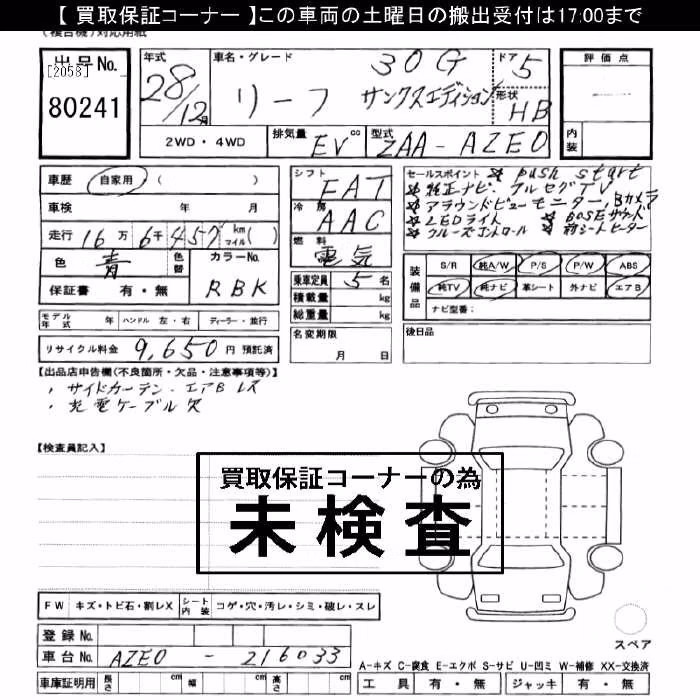 【 買取保証コーナー 】この車両の土曜日の搬出受付は17:00まで
(複合機)対応用紙
出品No.
[2058]
80241
年式
28/12月
車名・グレード
30G
リーフ サンクスエディション
ドア 5
形状 HB
2WD・4WD
排気量 EV cc
型式 ZAA-AZE0
評価点
内装
車歴 自家用 ( )
車検 年 月
走行 16万6千457 km マイル( )
色 青 色替
カラーNo. RBK
保証書 有・無
シフト FAT
冷房 AAC
燃料 電気
乗車定員 5名
積載量 kg
総重量 kg
セールスポイント ☆ push start
☆ 純正ナビ、フルセグTV
☆ アラウンドビューモニター、Bカメラ
☆ LEDライト ☆ BOSEサウンド
☆ クルーズコントロール ☆ 前シートヒーター
装備品
S/R 純A/W P/S P/W ABS
純TV 純ナビ 革シート 外ナビ エアB
ナビ型番:
モデル年式 年 ハンドル 左・右 ディーラー・並行
リサイクル料金 9,650 円 預託済
名変期限
月 日
後日品
【出品店申告欄(不良箇所・欠品・注意事項等)】
・サイドカーテン・エアBレス
・充電ケーブル欠
【検査員記入】
買取保証コーナーの為
未検査
FW キズ・トビ石・割レX シート内装 コゲ・穴・汚レ・シミ・破レ・スレ
登録No.
車台No. AZE0 - 216033
車庫証明用 長さ cm 幅 cm 高さ cm
スペア
A-キズ C-腐食 E-エクボ S-サビ U-凹ミ W-補修 XX-交換済
工具 有・無 ジャッキ 有・無